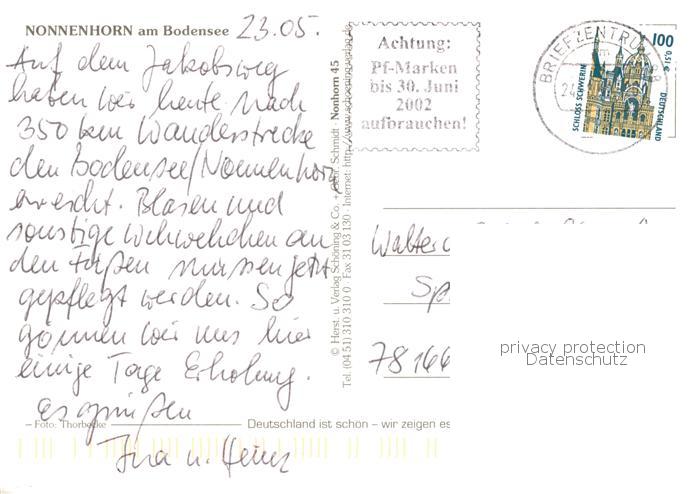 NONNENHORN am Bodensee 23.05.
Auf dem Jakobsweg
haben wir heute nach
350 km Wanderstrecke
den Bodensee/Nonnenhorn
erreicht. Blasen und
sonstige Wehwehchen an
den Füßen müssen jetzt
gepflegt werden. So
gönnen wir uns hier
einige Tage Erholung.
Es grüßen
– Foto: Thorbecke
Deutschland ist schön – wir zeigen es
u. Heinz
© Herst. u. Verlag: Schöning & Co. + Gebr. Schmidt Nonhorn 45
Tel. (04 51) 310 310 0 · Fax 31 03 130 · Internet: http://www.schoening-verlag.de
Achtung:
Pf-Marken
bis 30. Juni
2002
aufbrauchen!
BRIEFZENTRUM
100
0,51 €
SCHLOSS SCHWERIN
DEUTSCHLAND
Walter
Sp
78166
privacy protection
Datenschutz